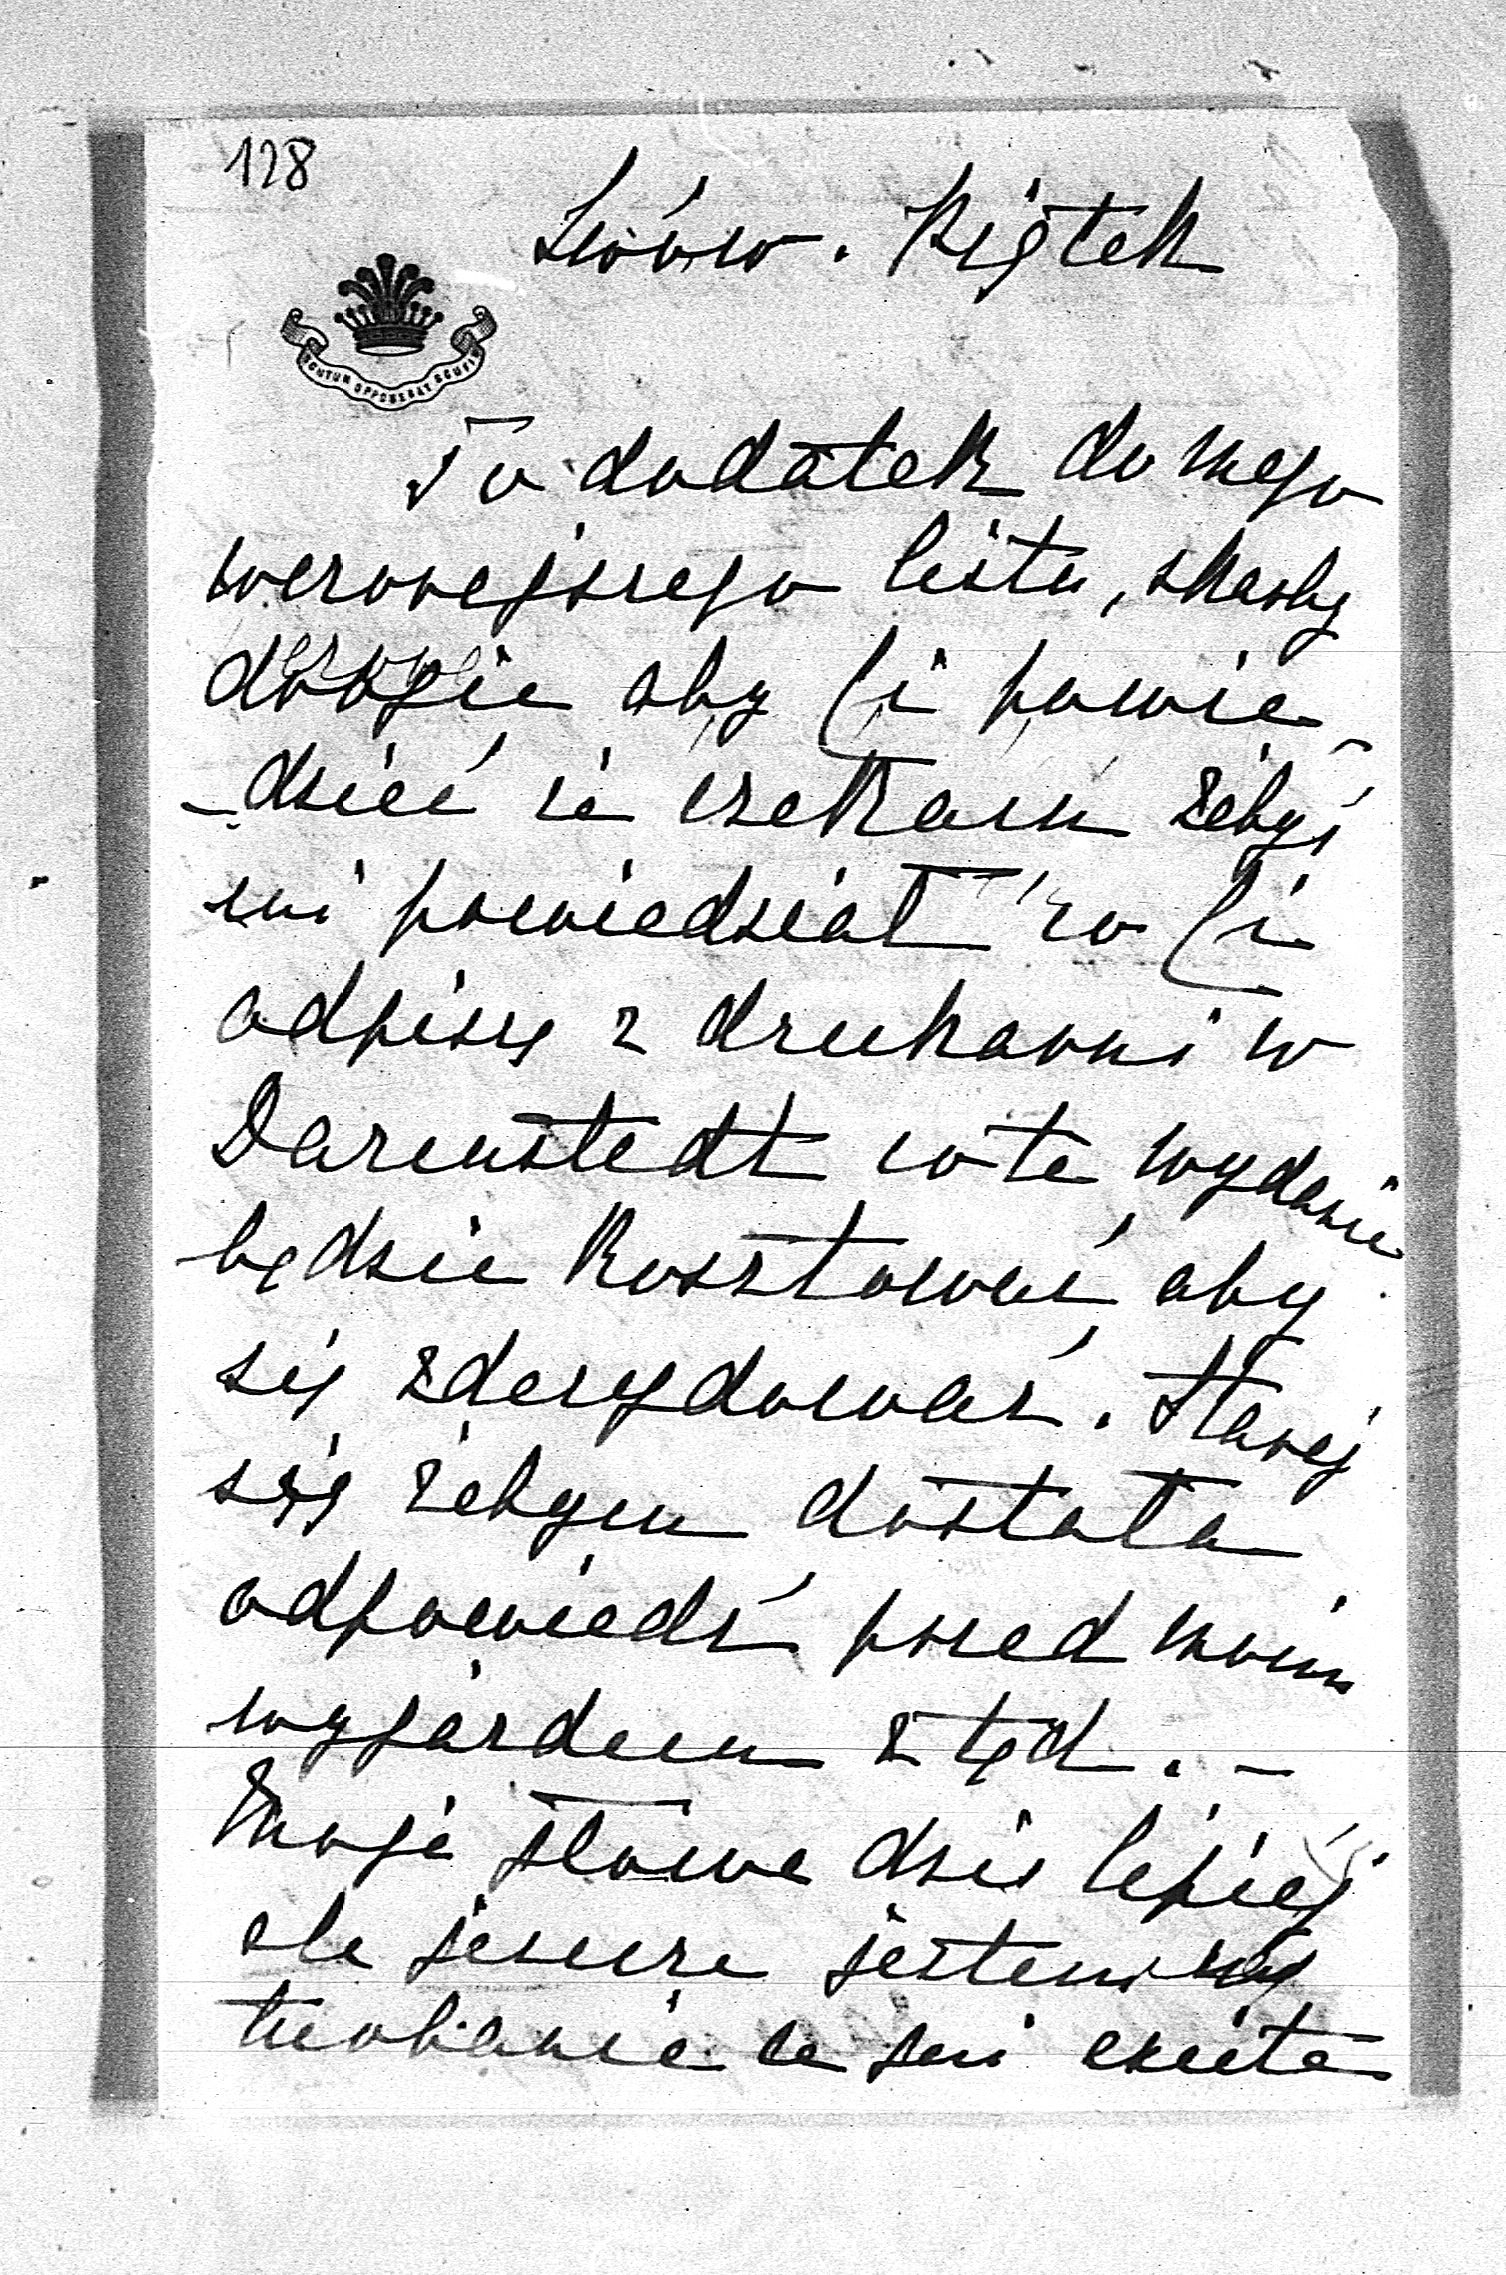 128
Lwów. Piątek
SCUTUM OPPONEBAT SCUTIS
To dodatek do mego
wczorajszego listu, skarby
drogie aby Ci powie
-dzieć że czekam żebyś
mi powiedział co Ci
odpiszą z drukarni w
Darmstedt co te wydanie
będzie kosztować, aby
się zdecydować. Staraj
się żebym dostała
odpowiedź przed moim
wyjazdem z tąd. -
Moja słowa dziś lepiej
ale jeszcze jestem